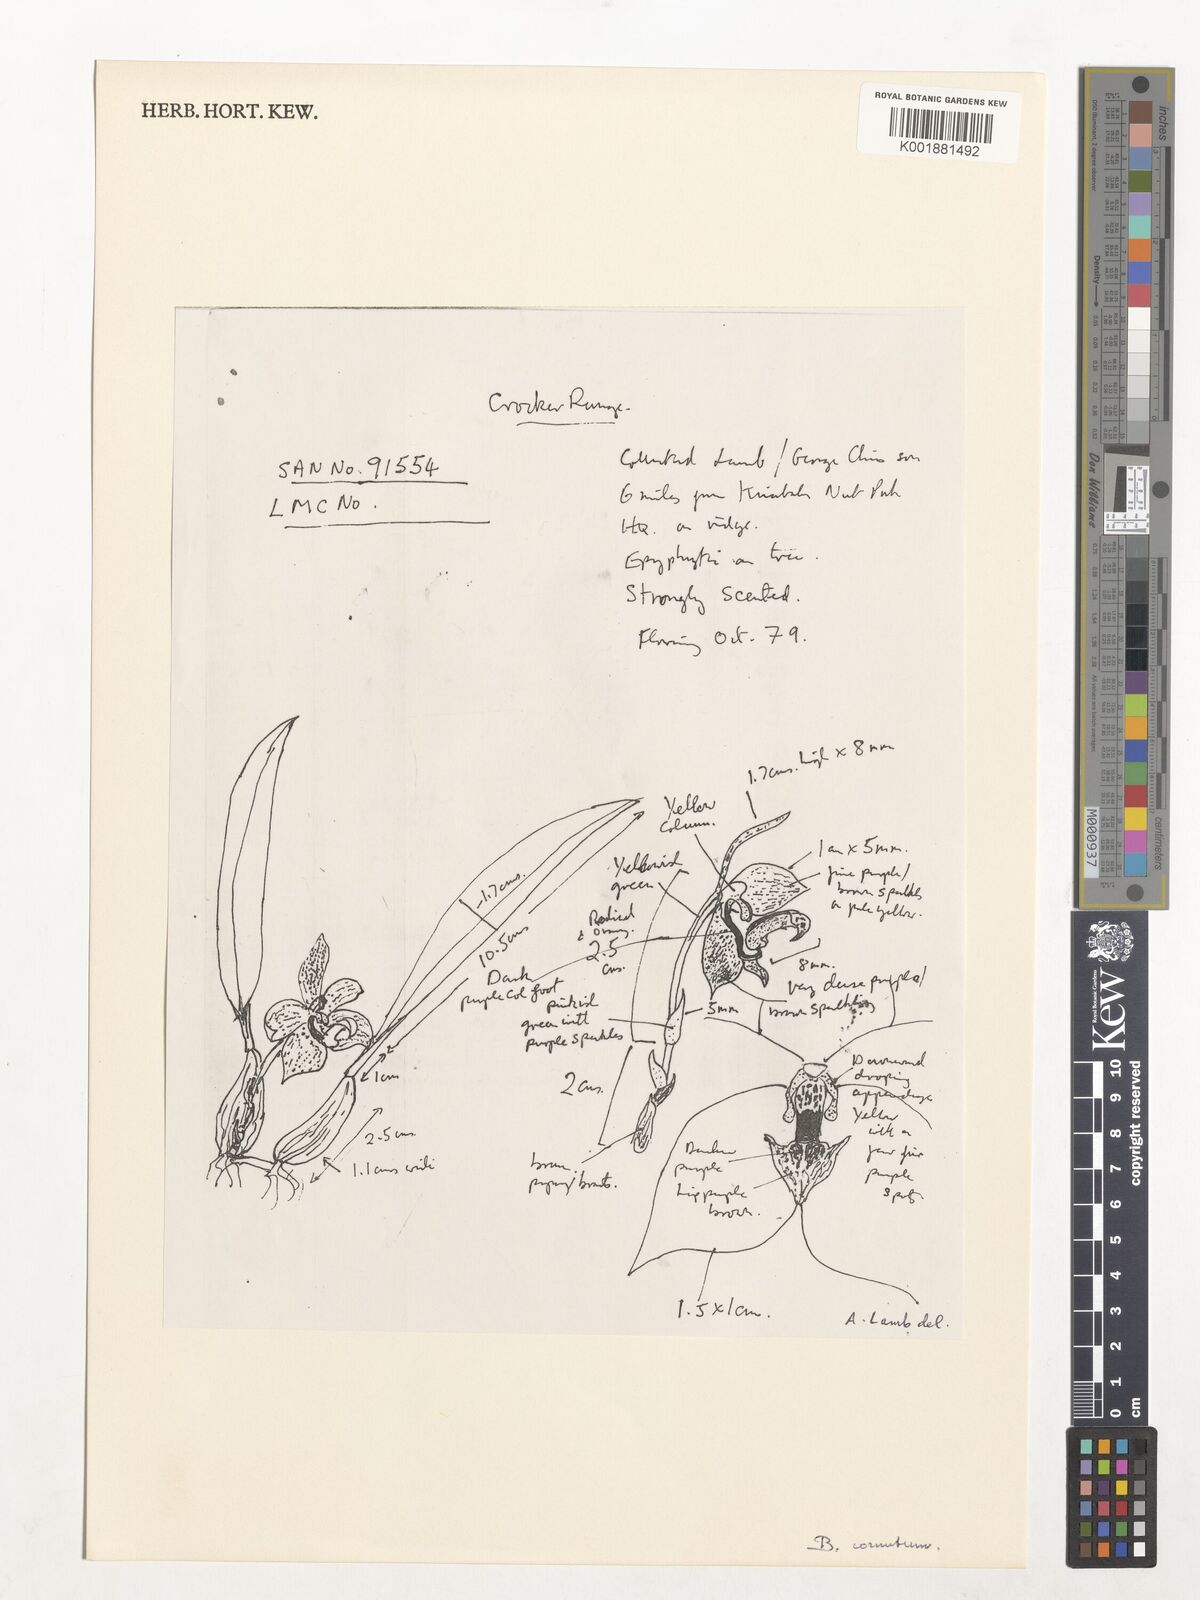 HERB. HORT. KEW.
ROYAL BOTANIC GARDENS KEW
K001881492
Crocker Range.
SAN No. 91554
LMC No.
Collected Lamb / George Chin son
6 miles from Kinabalu Nat Park
HQ. on ridge.
Epyphytic on tree.
Strongly Scented.
Flowering Oct. 79.
1.7cms. high x 8mm
Yellow
column.
1cm x 5mm.
fine purple/
brown speckles
on pale yellow.
Yellowish
green
1.7cms.
10.5cms
2.5
cms.
Dark
purple col foot
pinkish
green with
purple speckles
8mm.
very dense purple/
brown speckling
5mm
1cm
2cms.
Downward
drooping
appendage
Yellow
with a
few fine
purple
spots.
2.5cms
1.1cms wide
brown
papery bracts.
Darker
purple
Lip purple
brown.
1.5x1cm.
A. Lamb del.
B. cornutum.
inches
centimetres
Density
Don Williams
M000937
KEW
Royal Botanic Gardens
copyright reserved
0 1 2 3 4 5 6 7 8 9 10
cm